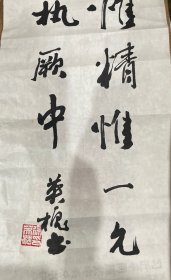 惟精惟一允
执厥中
英槐书